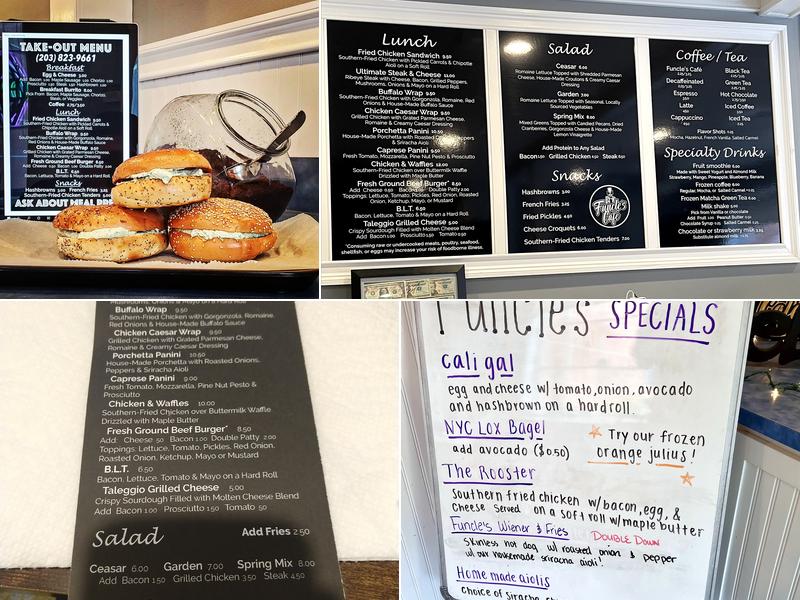 TAKE-OUT MENU
(203) 823-9661
Breakfast
Egg & Cheese
Breakfast Burrito
Coffee
Lunch
Fried Chicken Sandwich
Southern-Fried Chicken with Pickled Carrots & Chipotle
Aioli on a Soft Roll
Buffalo Wrap
Chicken Caesar Wrap
Fresh Ground Beef Burger
B.L.T.
Snacks
Hashbrowns French Fries
Southern-Fried Chicken Tenders
ASK ABOUT MEAL PRE
Lunch
Fried Chicken Sandwich 9.50
Southern-Fried Chicken with Pickled Carrots & Chipotle
Aioli on a Soft Roll
Ultimate Steak & Cheese 11.00
Ribeye Steak with Cheese, Bacon, Grilled Peppers,
Mushrooms, Onions & Mayo on a Hard Roll
Buffalo Wrap 9.50
Southern-Fried Chicken with Gorgonzola, Romaine, Red
Onions & House-Made Buffalo Sauce
Chicken Caesar Wrap 9.50
Grilled Chicken with Grated Parmesan Cheese,
Romaine & Creamy Caesar Dressing
Porchetta Panini 10.50
House-Made Porchetta with Roasted Onions, Peppers
& Sriracha Aioli
Caprese Panini 9.00
Fresh Tomato, Mozzarella, Pine Nut Pesto & Prosciutto
Chicken & Waffles 10.00
Southern-Fried Chicken over Buttermilk Waffle
Drizzled with Maple Butter
Fresh Ground Beef Burger* 8.50
Add: Cheese .50 Bacon 1.00 Double Patty 2.00
Toppings: Lettuce, Tomato, Pickles, Red Onion, Roasted
Onion, Ketchup, Mayo, or Mustard
B.L.T. 6.50
Bacon, Lettuce, Tomato & Mayo on a Hard Roll
Taleggio Grilled Cheese 5.00
Crispy Sourdough Filled with Molten Cheese Blend
Add Bacon 1.00 Prosciutto 1.50 Tomato .50
*Consuming raw or undercooked meats, poultry, seafood,
shellfish, or eggs may increase your risk of foodborne illness.
Salad
Ceasar 6.00
Romaine Lettuce Topped with Shredded Parmesan
Cheese, House-Made Croutons & Creamy Caesar
Dressing
Garden 7.00
Romaine Lettuce Topped with Seasonal, Locally
Sourced Vegetables
Spring Mix 8.00
Mixed Greens Topped with Candied Pecans, Dried
Cranberries, Gorgonzola Cheese & House-Made
Lemon Vinaigrette
Add Protein to Any Salad
Bacon 1.50 Grilled Chicken 3.50 Steak 4.50
Snacks
Hashbrowns 3.00
French Fries 3.25
Fried Pickles 4.50
Cheese Croquets 6.00
Southern-Fried Chicken Tenders 7.00
Funcle's
Cafe
Coffee / Tea
Funcle's Café
Black Tea
Decaffeinated
Green Tea
Espresso
Hot Chocolate
Latte
Iced Coffee
Cappuccino
Iced Tea
Flavor Shots
Mocha, Hazelnut, French Vanilla, Salted Carmel
Specialty Drinks
Fruit smoothie 6.00
Made with Sweet Yogurt and Almond Milk
Strawberry, Mango, Pineapple, Blueberry, Banana
Frozen coffee 6.00
Regular, Mocha, or Salted Carmel
Frozen Matcha Green Tea 6.00
Milk shake
Pick from Vanilla or chocolate
Chocolate or strawberry milk
Substitute almond milk
Mushrooms, Onions & Mayo on a Hard Roll
Buffalo Wrap 9.50
Southern-Fried Chicken with Gorgonzola, Romaine,
Red Onions & House-Made Buffalo Sauce
Chicken Caesar Wrap 9.50
Grilled Chicken with Grated Parmesan Cheese,
Romaine & Creamy Caesar Dressing
Porchetta Panini 10.50
House-Made Porchetta with Roasted Onions,
Peppers & Sriracha Aioli
Caprese Panini 9.00
Fresh Tomato, Mozzarella, Pine Nut Pesto &
Prosciutto
Chicken & Waffles 10.00
Southern-Fried Chicken over Buttermilk Waffle
Drizzled with Maple Butter
Fresh Ground Beef Burger* 8.50
Add: Cheese .50 Bacon 1.00 Double Patty 2.00
Toppings: Lettuce, Tomato, Pickles, Red Onion,
Roasted Onion, Ketchup, Mayo or Mustard
B.L.T. 6.50
Bacon, Lettuce, Tomato & Mayo on a Hard Roll
Taleggio Grilled Cheese 5.00
Crispy Sourdough Filled with Molten Cheese Blend
Add Bacon 1.00 Prosciutto 1.50 Tomato .50
Salad Add Fries 2.50
Ceasar 6.00 Garden 7.00 Spring Mix 8.00
Add Bacon 1.50 Grilled Chicken 3.50 Steak 4.50
Funcle's SPECIALS
cali gal
egg and cheese w/ tomato, onion, avocado
and hashbrown on a hardroll.
NYC Lox Bagel
add avocado ($0.50)
Try our frozen
orange julius!
The Rooster
Southern fried chicken w/bacon, egg, &
cheese served on a soft roll w/maple butter
Funcle's Wiener & Fries DOUBLE DOWN
Skinless hot dog, w/ roasted onion & pepper
w/ our housemade sriracha aioli!
Home made aiolis
choice of Siracha